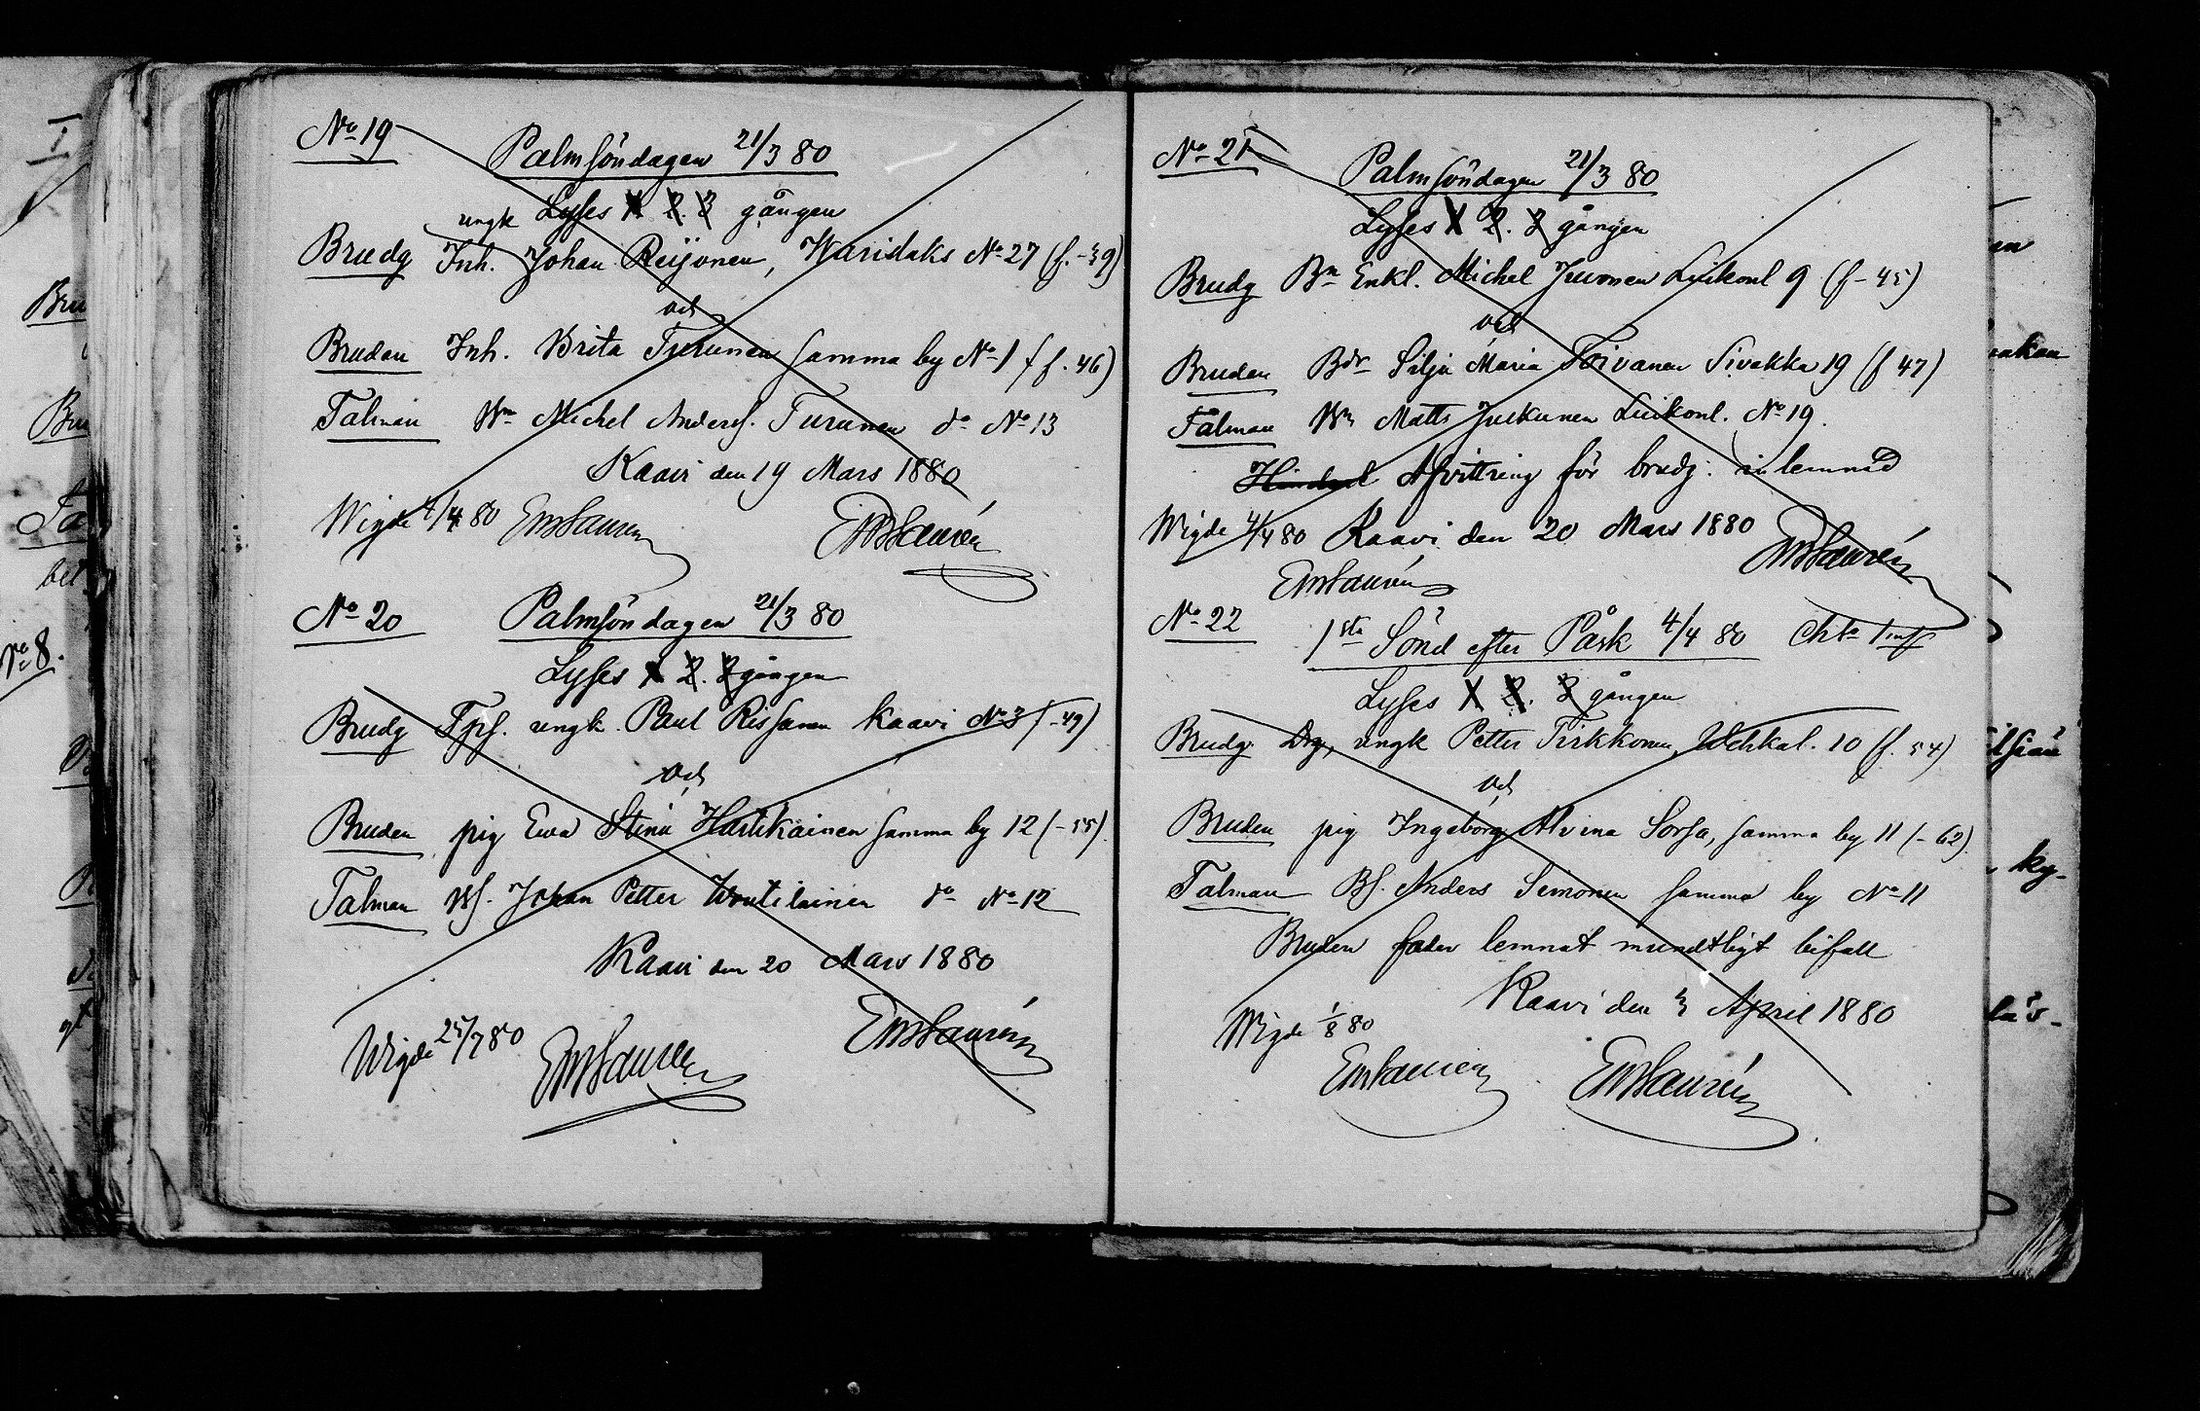 No 19
Palmsöndagen 21/3 80
Lyses 1. 2. 3 gången
ungk
Brudg Inh. Johan Reijonen, Waridaks No 27 (f. -39)
och
Bruden Inh. Brita Turunen samma by No 1 (f. 46)
Talman Bn Michel Anderss. Turunen do No 13
Kaavi den 19 Mars 1880
Wigde 4/4 80 EWLaurén
EWLaurén
No 20
Palmsöndagen 21/3 80
Lyses 1 2. 3 gången
Brudg ungk. Paul Rissanen Kaavi No 3 (-49)
och
Bruden pig Ewa Stina Hartikainen samma by 12 (-55)
Talman Bs. Johan Petter Woutilainen do No 12
Kaavi den 20 Mars 1880
Wigde 25/7 80 EWLaurén
EWLaurén
No 21
Palmsöndagen 21/3 80
Lyses 1 2. 3 gången
Brudg Bn Enkl. Michel Juvonen Luikonl 9 (f-45)
och
Bruden Bdr Silja Maria Toivanen Sivakka 19 (f 47)
Talman Bn Matts Juckunen Luikonl. No 19.
Afvittring för brudg. inlemnad
Wigde 4/4 80 Kaavi den 20 Mars 1880
EWLaurén
EWLaurén
No 22
1sta Sönd efter Påsk 4/4 80
Lyses 1 2. 3 gången
Brudg. Drg, ungk Petter Tirkkonen, Wehkal. 10 (f. 54)
och
Bruden pig Ingeborg Alvina Sorsa, samma by 11 (-62)
Talman Bs. Anders Simonen samma by No 11
Bruden fader lemnat mundtligt bifall
Kaavi den 3 April 1880
Wigde 1/8 80
EWLaurén
EWLaurén